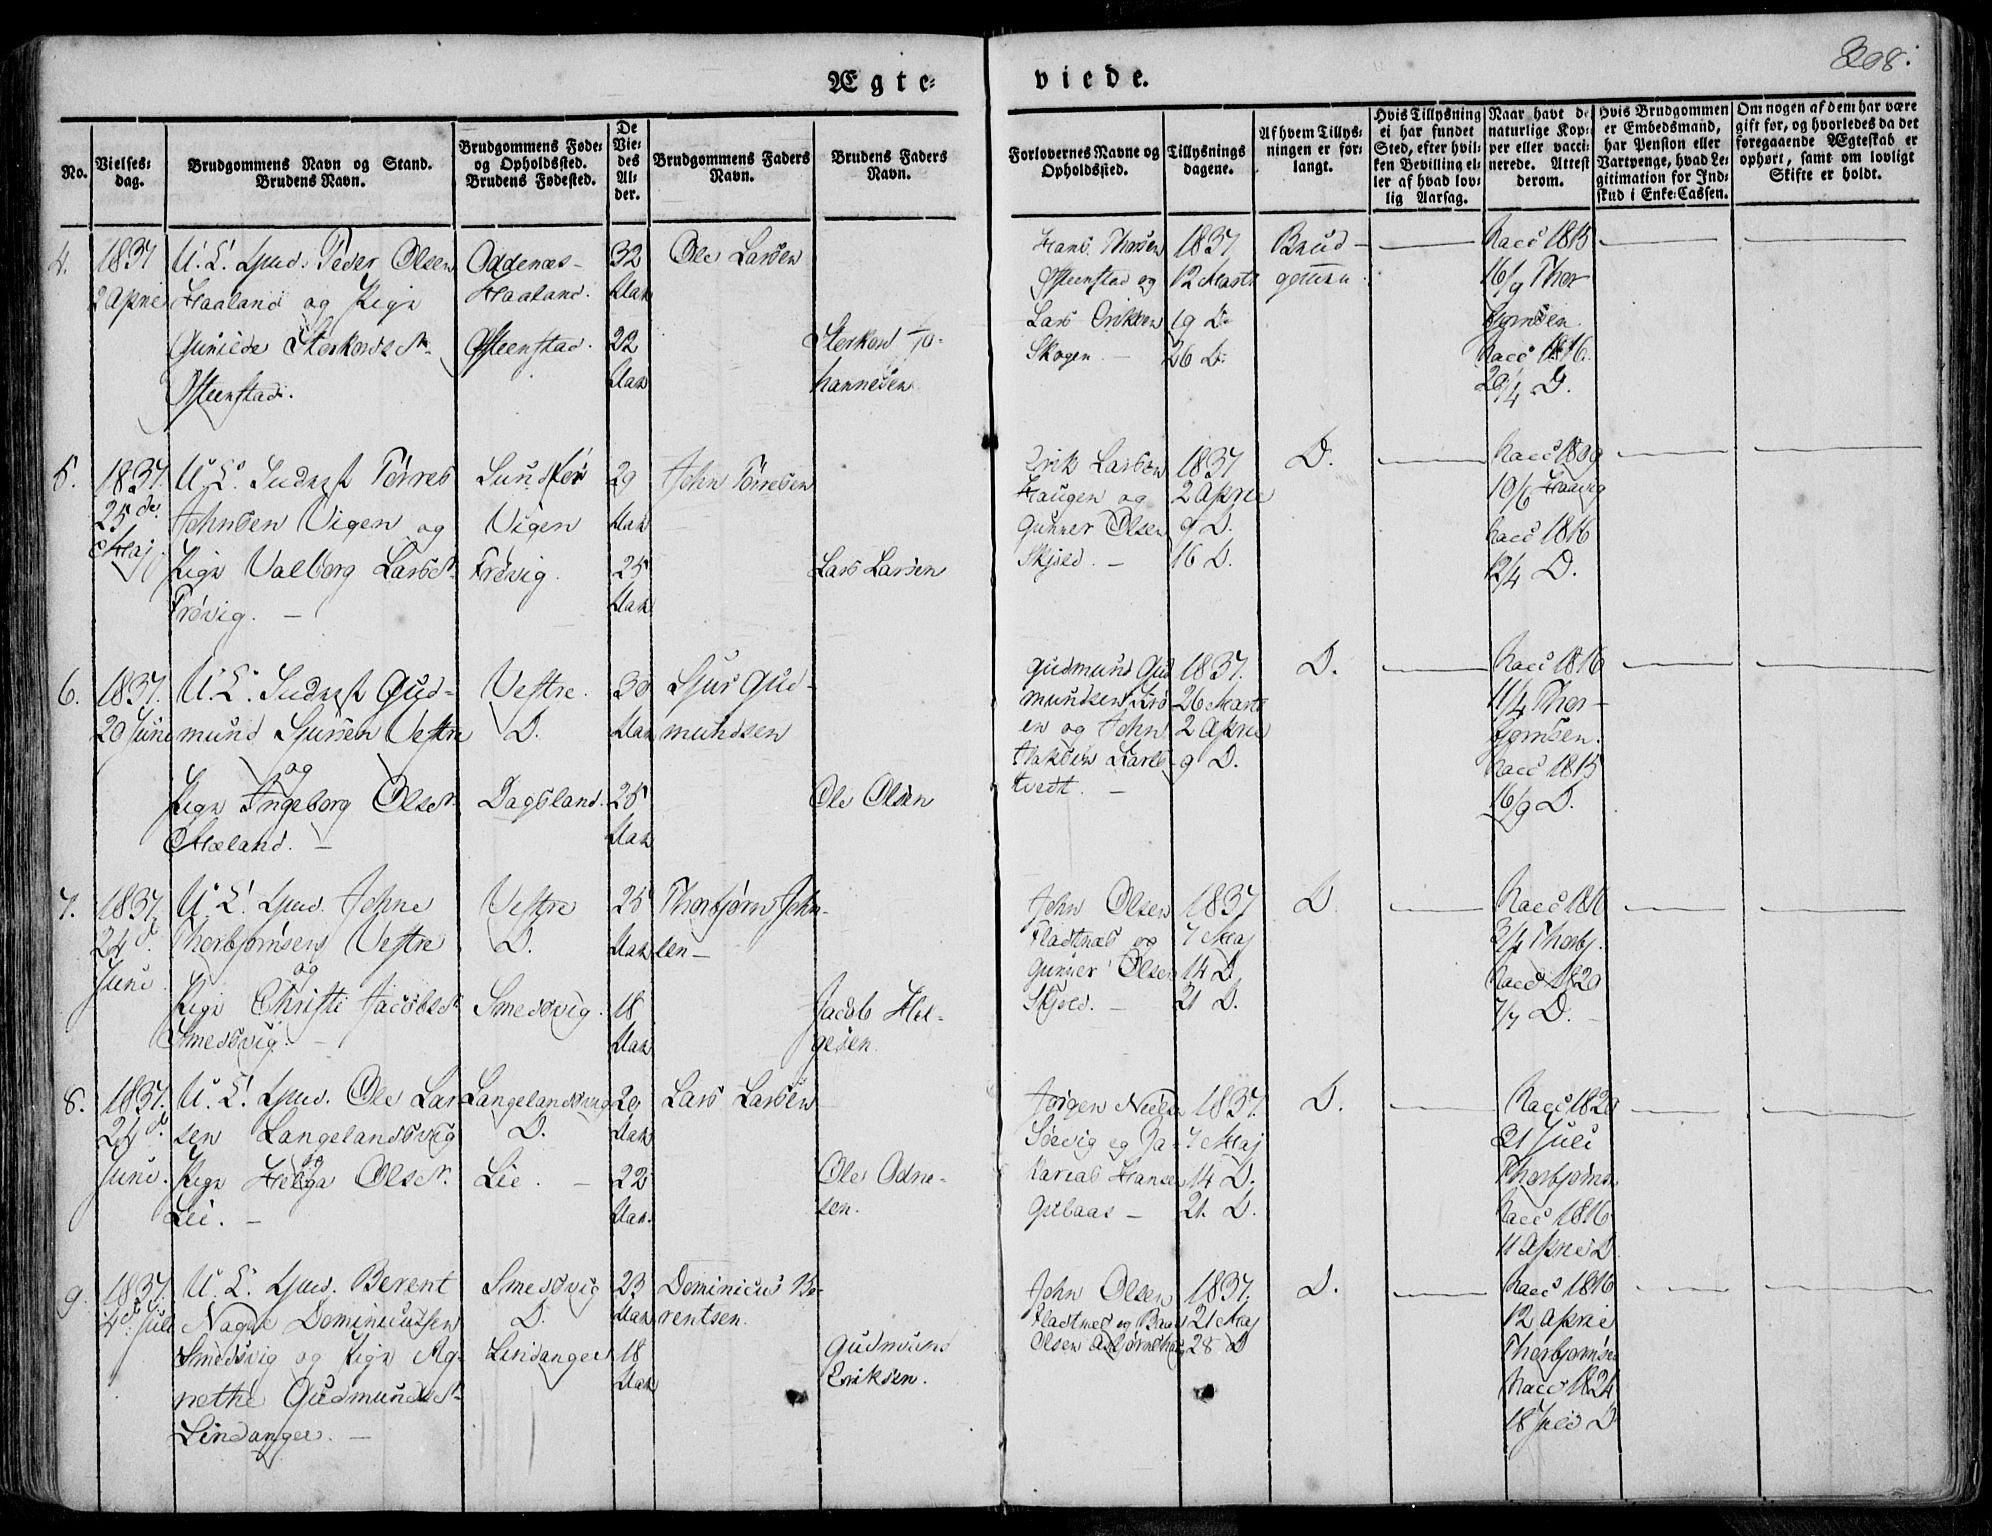 308.
Ægte-
viede.
No.
Vielses-
dag.
Brudgommens Navn og Stand.
Brudens Navn.
Brudgommens Føde-
og Opholdssted.
Brudens Fødested.
De
Vie-
des
Al-
der.
Brudgommens Faders
Navn.
Brudens Faders
Navn.
Forlovernes Navne og
Opholdssted.
Tillysnings
dagene.
Af hvem Tillys-
ningen er for-
langt.
Hvis Tillysning
ei har fundet
Sted, efter hvil-
ken Bevilling el-
ler af hvad lov-
lig Aarsag.
Naar havt de
naturlige Kop-
per eller vacci-
nerede. Attest
derom.
Hvis Brudgommen
er Embedsmand,
har Pension eller
Vartpenge, hvad Le-
gitimation for Ind-
skud i Enke-Cassen.
Om nogen af dem har være
gift før, og hvorledes da det
foregaaende Ægteskab er
ophørt, samt om lovligt
Skifte er holdt.
4.
1837
2 April
U. C. Peder Olsen
Haaland og Pige
Gunilde
Østeenstad.
Oddenæs-
Haaland.
Østeenstad.
32
Aar
22
Aar
Ole Larsen
Sterkord Jo-
hannesen
Hans Thorsen
Østeenstad og
Lars Eriksen
Skogen. —
1837
12 Marts
19 D.
26 D.
Brud-
gommen
Vacc 1815
16/9 Thor
bjørnsen.
Vacc 1816.
/4 D.
5.
1837
25de
Maj
U. C. Tørres
Johnsen Vigen og
Pige Valborg Larsdtr.
Frøvig. —
Sundfør
Vigen
Frøvig.
29
Aar
25
Aar
John Tørresen
Lars Larsen
Erik Larsen
Haugen og
Gunner Olsen
Skjold. —
1837
2 April
9 D.
16 D.
D.
Vacc 1809
10/6 Haavig
Vacc 1816
12/4 D.
6.
1837.
20 Juni
U. C. Gud-
mund Sjursen Vestre
og
Pige Ingeborg Olsdtr.
Mæland. —
Vestre.
D.
Dagsland.
30
Aar
25
Aar
Sjur Gud-
mundsen
Ole Olsen
Gudmund Gud
mundsen
en og John
1837.
26 Marts
2 April
9 D.
D.
Vacc 1816
11/4 Thor-
bjørnsen.
Vacc 1815
16/9 D.
7.
1837.
24 d.
Juni
U. C. Johne
Thorbjørnsen Vestre
og
Pige Christi Jacobsdtr
Smedsvig. —
Vestre
D.
Smedsvig.
25
Aar
18
Aar
Thorbjørn John-
sen —
Jacob Hel-
gesen.
John Olsen
Fladtnæs og
Gunner Olsen
Skjold. —
1837
7 Maj
14 D.
21 D.
D.
Vacc 1816
3/4 Thorbj.
Vacc 1820
7/7 D. —
8.
1837.
24 d.
Juni.
U. C. Ole Lar
sen Langelandsvig
og
Pige Helga Olsdtr.
Lie. —
Langelandsvig
D.
Lie. —
29
Aar
22
Aar.
Lars Larsen
Ole Odne-
sen.
Jørgen Niels
Søevig og Za-
karias Hansen
—
1837.
7 Maj
14 D.
21. D.
D.
Vacc 1820
21 Juli
Thorbjørns.
Vacc 1816
11 April D.
9.
1837.
4de Juli
U. C. Berent
Dominicussen
Smedsvig og Pige Ag-
nethe Gudmundsdtr.
Lindanger. —
Smedsvig
D.
Lindanger
23
Aar
18
Aar
Dominicus Be-
rentsen.
Gudmund
Eriksen.
John Olsen
Fladtnæs og
Olsen
1837.
21 Maj
28 D
D.
Vacc 1816
12 April
Thorbjørnsen
Vacc 1824
18 Juli D